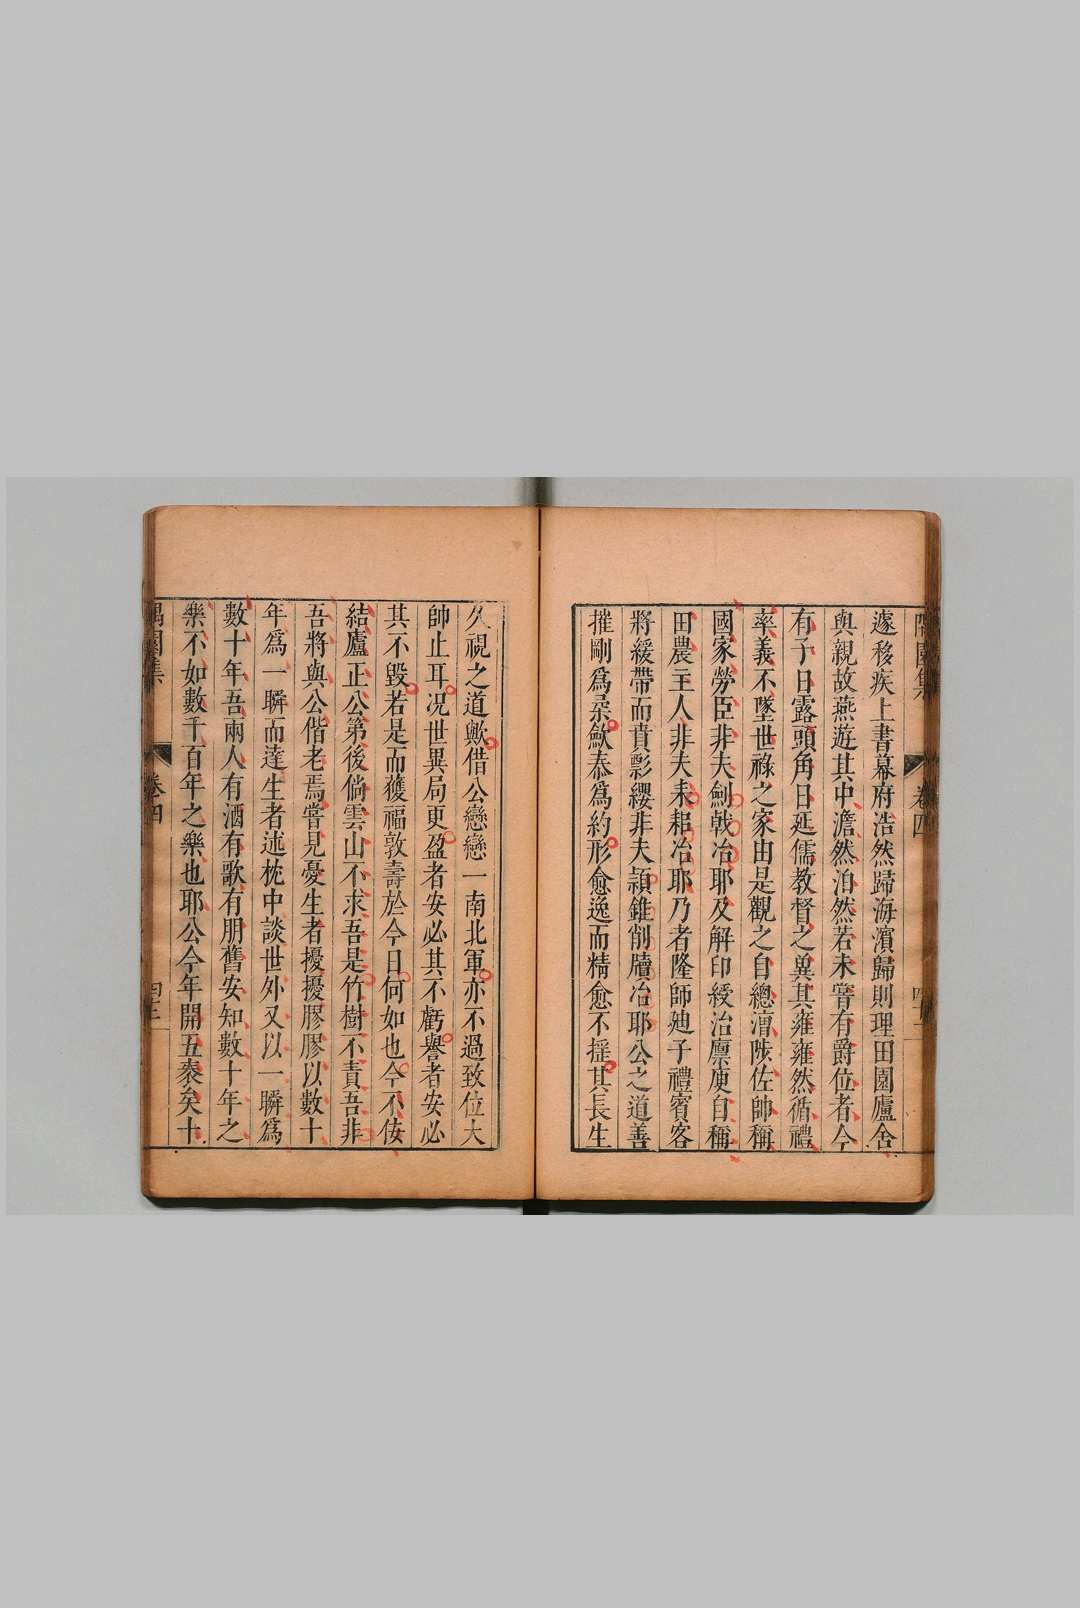 遂移疾上書幕府浩然歸海濱歸則理田園廬舍
與親故燕遊其中澹然泊然若未嘗有爵位者今
有子日露頭角日延儒教督之巽其雍雍然循禮
率義不墜世祿之家由是觀之自總漕陟佐帥稱
國家勞臣非夫劍戟冶耶及解印綬治廩庾自稱
田農主人非夫耒耜冶耶乃者隆師廸子禮賓客
將緩帶而賁影纓非夫頴錐削牘冶耶公之道善
摧剛爲柔歛泰爲約形愈逸而精愈不揺其長生
久視之道歟借公戀戀一南北軍亦不過致位大
帥止耳况世異局更盈者安必其不虧譽者安必
其不毀若是而獲福敦壽於今日何如也今不佞
結廬正公第後倘雲山不求吾是竹樹不責吾非
吾將與公偕老焉嘗見憂生者擾擾膠膠以數十
年爲一瞬而達生者述枕中談世外又以一瞬爲
數十年吾兩人有酒有歌有朋舊安知數十年之
樂不如數千百年之樂也耶公今年開五袠矣十
卷四
卷四